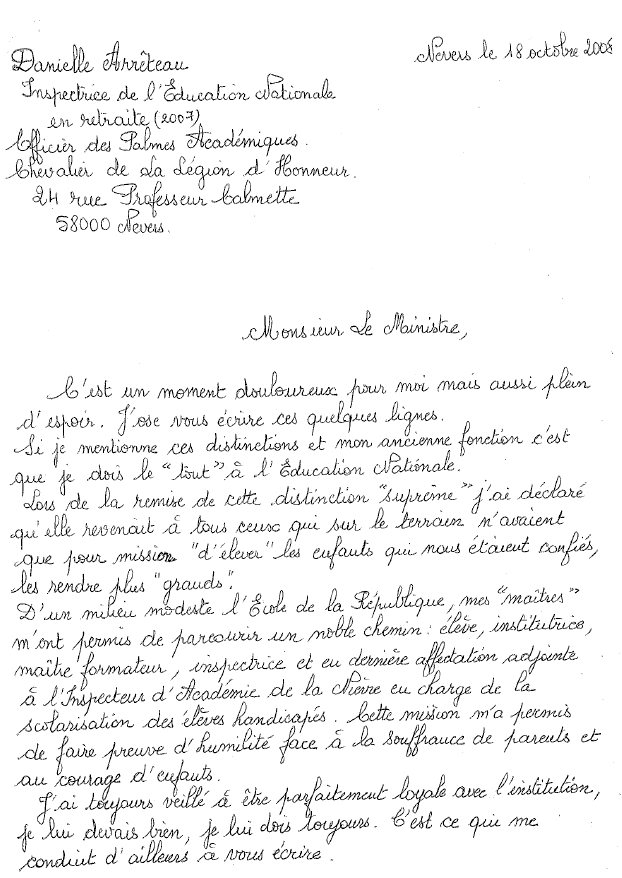 Danielle Arrêteau
Nevers le 18 octobre 2008
Inspectrice de l'Education Nationale
en retraite (2007)
Officier des Palmes Académiques.
Chevalier de La Légion d'Honneur.
24 rue Professeur Calmette
58000 Nevers.
Monsieur Le Ministre,
C'est un moment douloureux pour moi mais aussi plein
d'espoir. J'ose vous écrire ces quelques lignes.
Si je mentionne ces distinctions et mon ancienne fonction c'est
que je dois le "tout" à l'Education Nationale.
Lors de la remise de cette distinction "suprême" j'ai déclaré
qu'elle revenait à tous ceux qui sur le terrain n'avaient
que pour mission "d'élever" les enfants qui nous étaient confiés,
les rendre plus "grands".
D'un milieu modeste l'Ecole de la République, mes "maîtres"
m'ont permis de parcourir un noble chemin : élève, institutrice,
maître formateur, inspectrice et en dernière affectation adjointe
à l'Inspecteur d'Académie de la Nièvre en charge de la
scolarisation des élèves handicapés. Cette mission m'a permis
de faire preuve d'humilité face à la souffrance de parents et
au courage d'enfants.
J'ai toujours veillé à être parfaitement loyale avec l'institution,
je lui devais bien, je lui dois toujours. C'est ce qui me
conduit d'ailleurs à vous écrire.